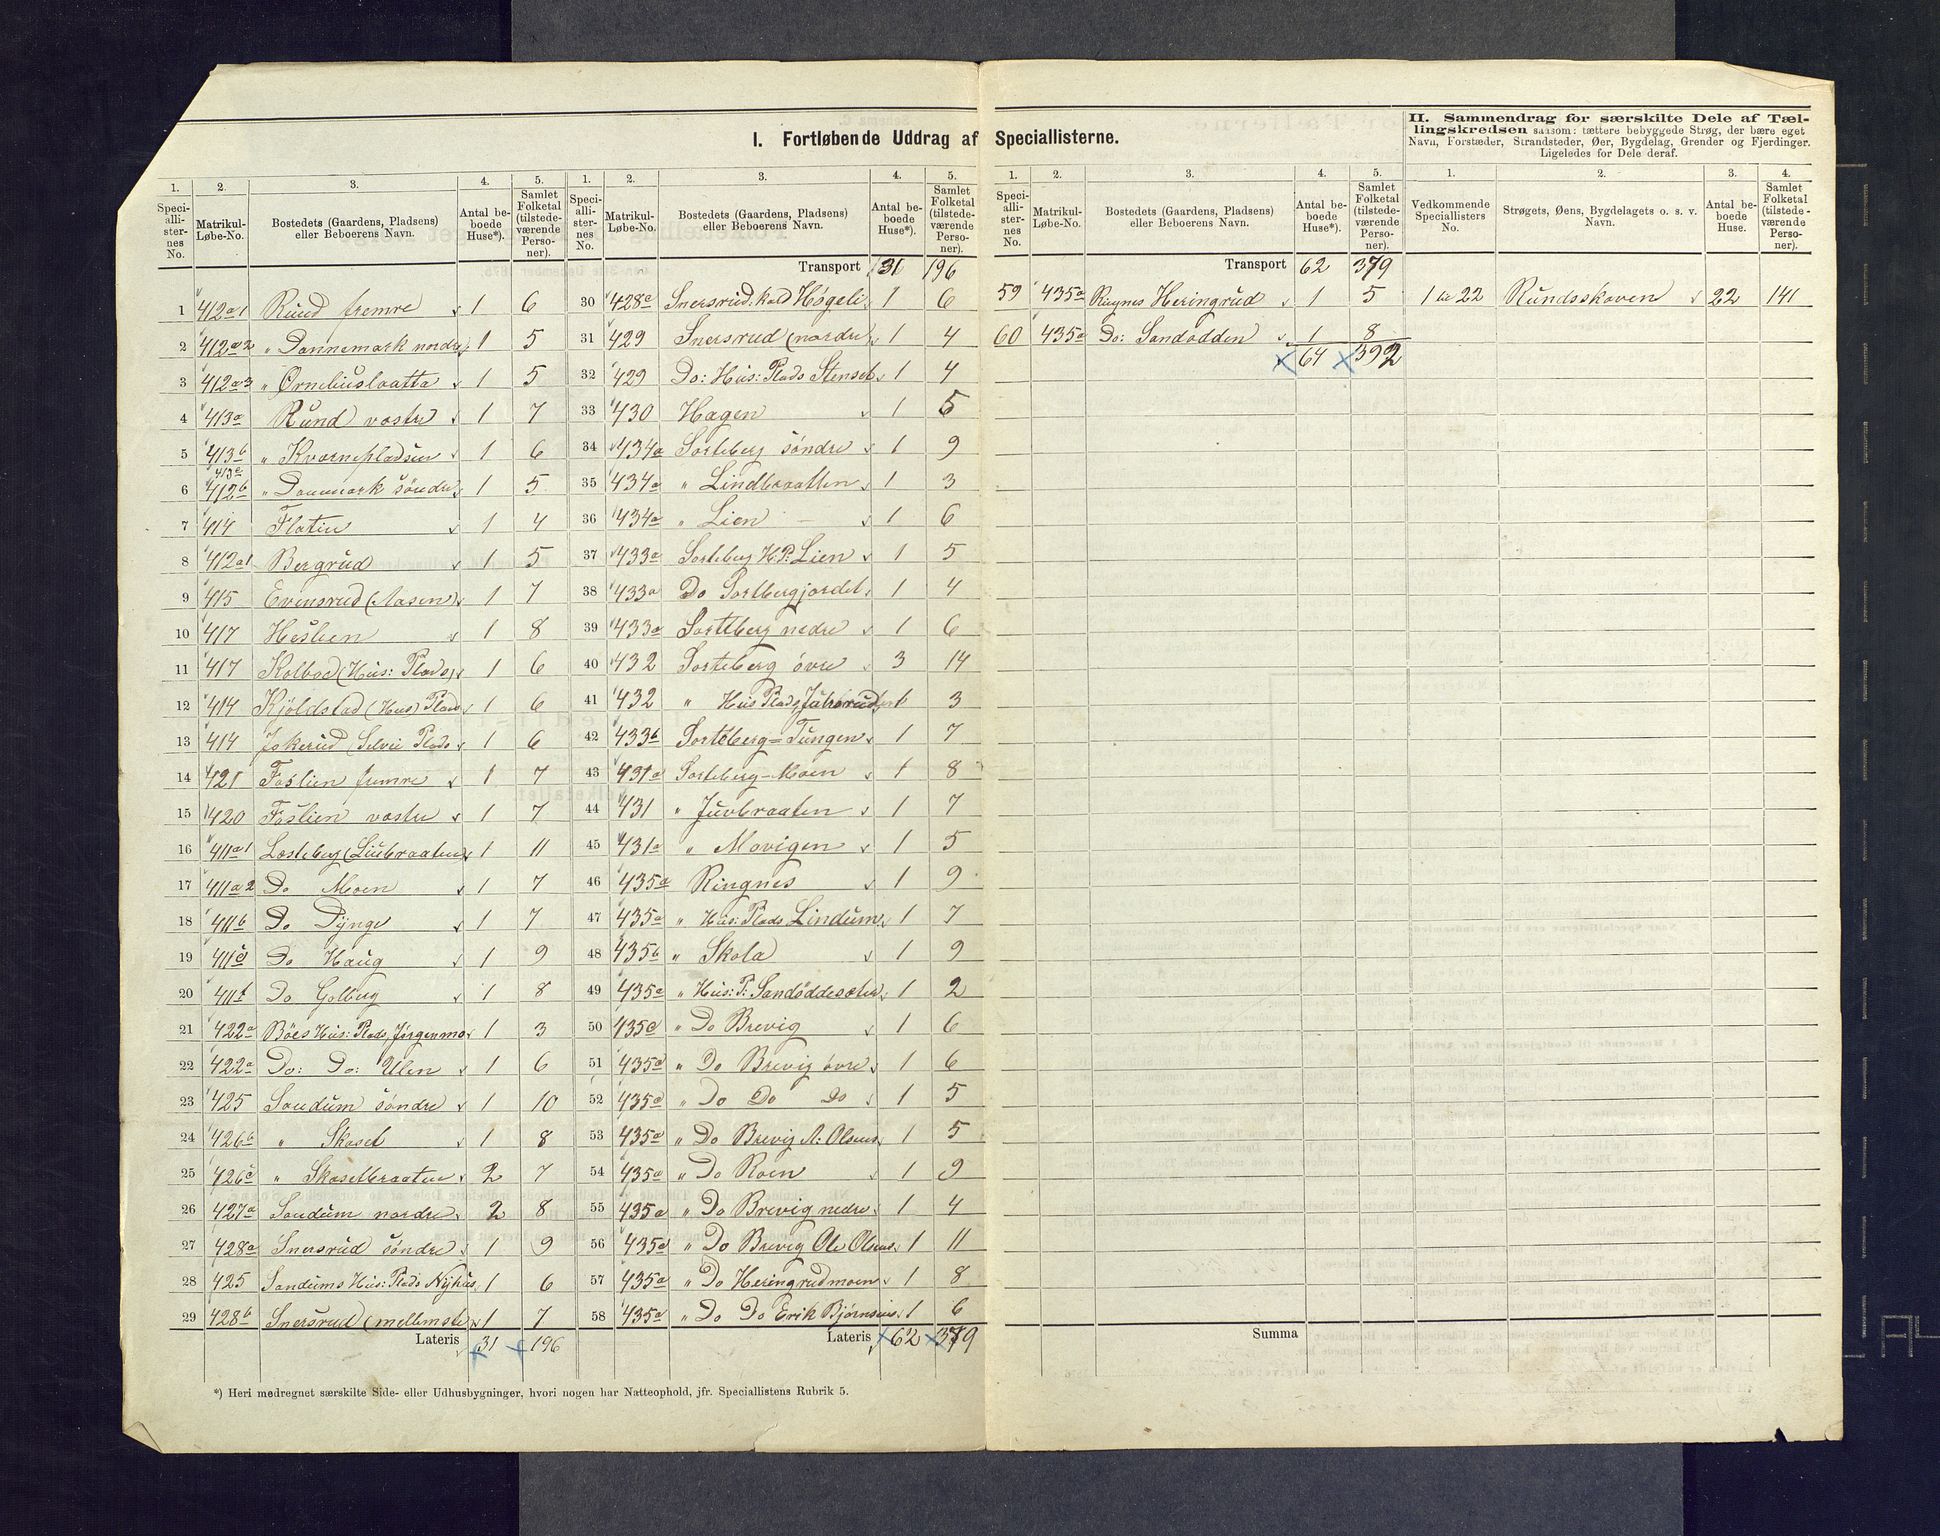 I. Fortløbende Uddrag af Speciallisterne.
II. Sammendrag for særskilte Dele af Tællingskredsen saasom: tættere bebyggede Strøg, der bære eget Navn, Forstæder, Strandsteder, Øer, Bygdelag, Grender og Fjerdinger. Ligeledes for Dele deraf.
1. 2. 3. 4. 5.
Speciallisternes No. Matrikul-Løbe-No. Bostedets (Gaardens, Pladsens) eller Beboerens Navn. Antal beboede Huse*). Samlet Folketal (tilstedeværende Personer).
1 412a1 Rund fremre 1 6
2 412a2 „ Dannemark nordre 1 5
3 412a3 „ Ørnehuslaatta 1 5
4 413a Rund vestre 1 7
5 413b „ Kvernepladsen 1 6
6 413c 412b „ Danmark søndre 1 5
7 414 Flatin 1 4
8 412a1 Bergrud 1 5
9 415 Evensrud (Aasen) 1 7
10 417 Heslien 1 8
11 417 Kolbod (Hus: Plads) 1 6
12 414 Kjöldstad (Hus) Plads 1 6
13 414 Jokerud Selvei Plads 1 6
14 421 Faslien fremre 1 7
15 420 Faslien vestre 1 7
16 411a1 Lesteberg (Liebraaten) 1 11
17 411a2 Do Moen 1 7
18 411b Do Dynge 1 7
19 411c Do Haug 1 9
20 411f Do Golberg 1 8
21 422a Böes Hus: Plads, Jörgenmo 1 3
22 422a Do: Do: Ulen 1 6
23 425 Sandum söndre 1 10
24 426b „ Skaset 1 8
25 426c „ Skasetbraaten 2 7
26 427a Sandum nordre 2 8
27 428a Snersrud söndre 1 9
28 425 Sandums Hus: Plads Nyhus 1 6
29 428b Snersrud (mellemste) 1 7
Lateris 31 196
1. 2. 3. 4. 5.
Speciallisternes No. Matrikul-Løbe-No. Bostedets (Gaardens, Pladsens) eller Beboerens Navn. Antal beboede Huse*). Samlet Folketal (tilstedeværende Personer).
Transport 31 196
30 428c Snersrud: kald Høgeli 1 6
31 429 Snersrud (nordre) 1 4
32 429 Do: Hus: Plads Stenset 1 4
33 430 Hagen 1 5
34 434a Sorteberg söndre 1 9
35 434a „ Lindbraatten 1 3
36 434a „ Lien 1 6
37 433a Sorteberg H.P: Lien 1 5
38 433a Do Sortbergjordet 1 4
39 433a Sorteberg nedre 1 6
40 432 Sorteberg övre 3 14
41 432 „ Hus Plads, 1 3
42 433b Sorteberg=Tungen 1 7
43 431a Sorteberg-Moen 1 8
44 431 „ Juvbraaten 1 7
45 431a „ Movigen 1 5
46 435a Ringnes 1 9
47 435a „ Hus: Plads Lindum 1 7
48 435b „ Skola 1 9
49 435a „ Hus: P: Sandöddesæter 1 2
50 435a „ Do Brevig 1 6
51 435a „ Do Brevig övre 1 6
52 435a „ Do Do Do 1 5
53 435a „ Do Brevig A: Olsens 1 5
54 435a „ Do Roen 1 9
55 435a „ Do Brevig nedre 1 4
56 435a „ Do Brevig Ole Olsens 1 11
57 435a „ Do Heringrudmoen 1 8
58 435a „ Do Do Erik Bjørnsens 1 6
Lateris 62 379
1. 2. 3. 4. 5.
Speciallisternes No. Matrikul-Løbe-No. Bostedets (Gaardens, Pladsens) eller Beboerens Navn. Antal beboede Huse*). Samlet Folketal (tilstedeværende Personer).
Transport 62 379
59 435a Ringnes Heringrud 1 5
60 435a Do: Sandodden 1 8
64 392
Summa
1. 2. 3. 4.
Vedkommende Speciallisters No. Strøgets, Øens, Bygdelagets o. s. v. Navn. Antal beboede Huse. Samlet Folketal (tilstedeværende Personer).
1 til 22 Rundsskoven 22 141
*) Heri medregnet særskilte Side- eller Udhusbygninger, hvori nogen har Natteophold, jfr. Speciallistens Rubrik 5.